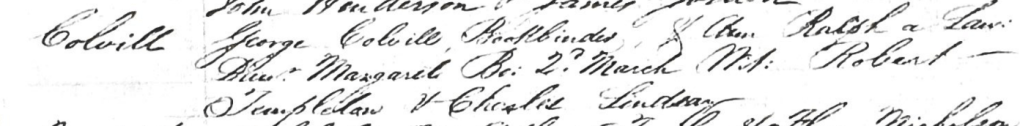 John Henderson & James
Colvill George Colvill, Bookbinder, & Ann Ralph a Law:
Daur. Margaret Bo: 2d. March Wit: Robert
Templeton & Charles Lindsay
Nicholson